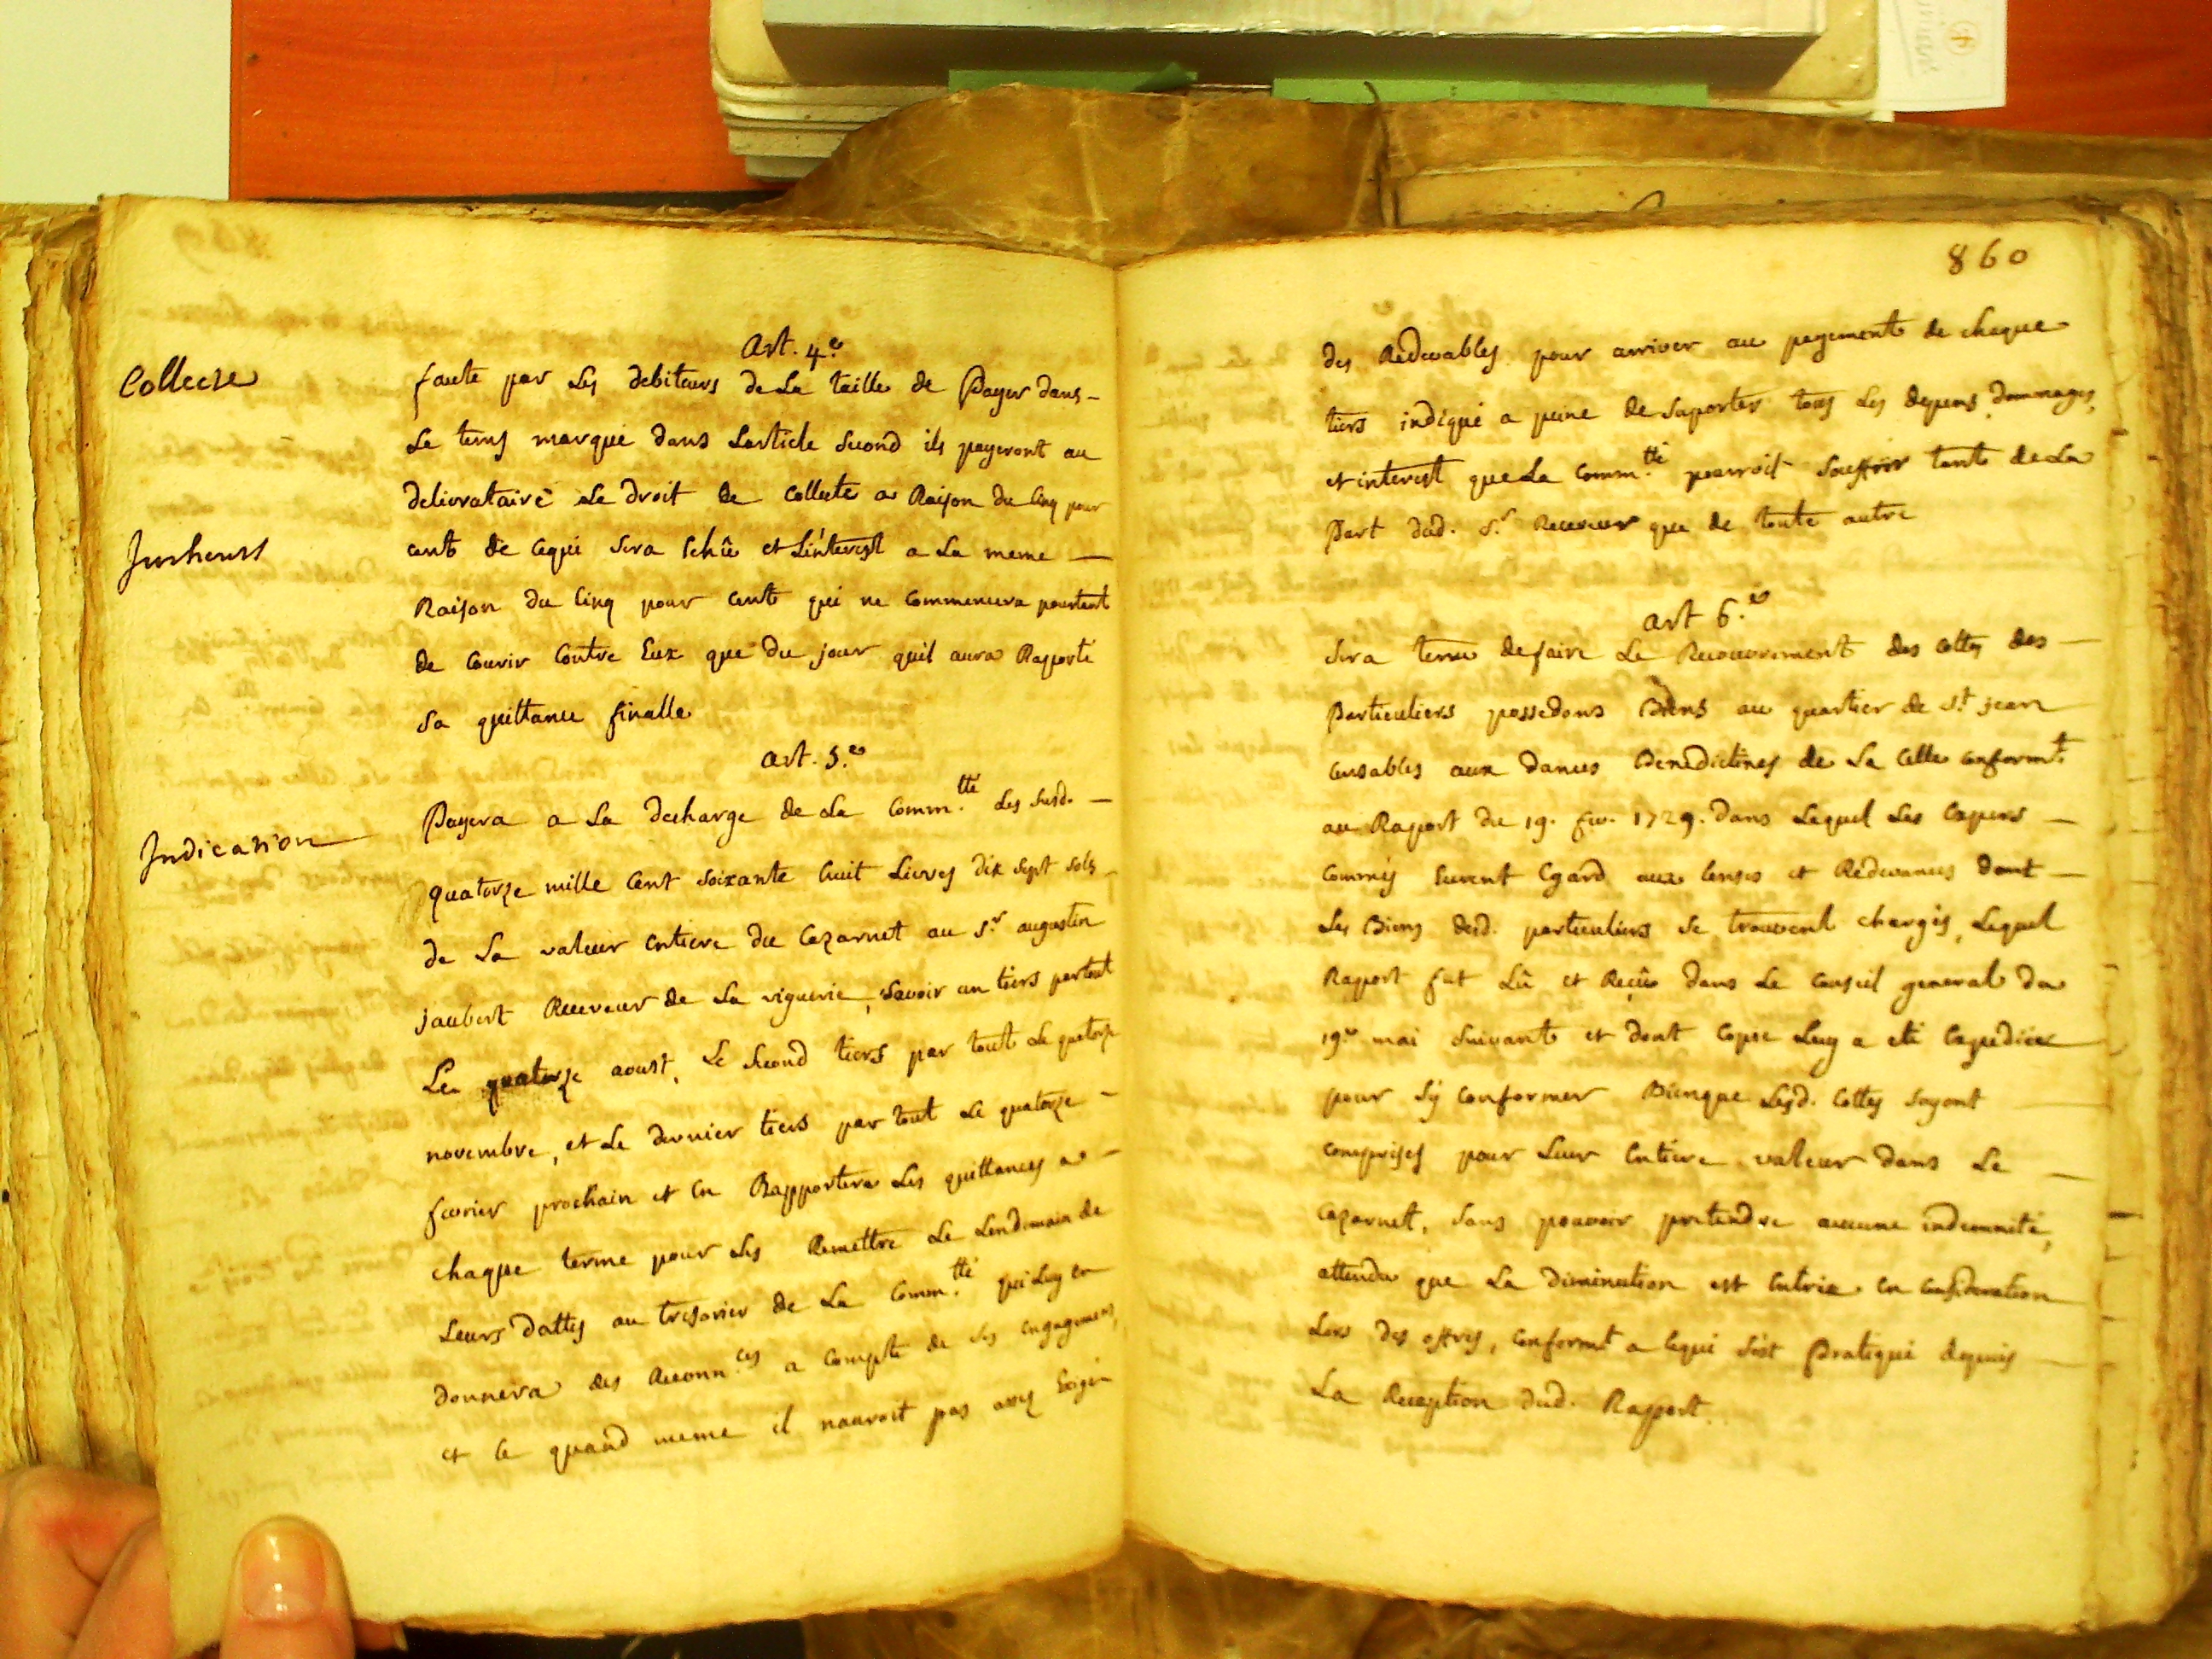 Art. 4.e
Collecte
faute par Les debiteurs de La taille de Payer dans
Le tems marqué dans Larticle Second ils payeront au
delivrataire Le droit de Collecte a Raison du Cinq pour
cent de cequi Sera Echû et L'interest a La meme
Raison du Cinq pour cent qui ne Commencera pourtant
de Courir Contre Eux que du jour quil aura Raporté
Sa quittance finalle
Art. 5.e
Indication
Payera a La decharge de La Comm.tté Les susd.
quatorze mille Cent soixante huit Livres dix sept sols
de La valeur entiere du Cazarnet au S.r augustin
jaubert Receveur de La viguerie, Savoir un tiers partout
Le quatorze aoust, Le Second tiers par tout Le quatorze
novembre, et Le dernier tiers par tout Le quatorze
fevrier prochain et En Rapportera Les quittances a
chaque terme pour Les Remettre Le Lendemain de
Leurs dattes au tresorier de La Comm.tté qui Luy en
donnera des Reconn.ces a Compte de Ses Engagemens
et Ce quand meme il nauroit pas assez Exigé
860
des Redevables pour arriver au payement de chaque
tiers indiqué a peine de Suporter tous Les depens, dommages,
et interest que La Comm.tté pourroit Souffrir tant de La
Part dud. S.r Receveur que de toute autre
art 6.e
Sera tenu de faire Le Recouvrement des Cottes des
Particuliers possedans Biens au quartier de St jean
Censables aux dames Benedictines de La Celle conformt.
au Raport du 19. fev. 1729. dans Lequel Les Expers
Commis Eurent Egard aux Censes et Redevances dont
Les Biens desd. particuliers se trouvent chargés, Lequel
Raport fut Lû et Reçû dans Le Conseil general du
19.e mai Suivant et dont Copie Luy a eté Expediée
pour Sy Conformer Bienque Lesd. Cottes soyent
comprises pour Leur Entiere valeur dans Le
Cazarnet, Sans pouvoir pretendre aucune indemnité,
attendu que La diminution est Entrée en Consideration
Lors des offres, Conformt a Cequi S'est Pratiqué depuis
La Reception dud. Raport.